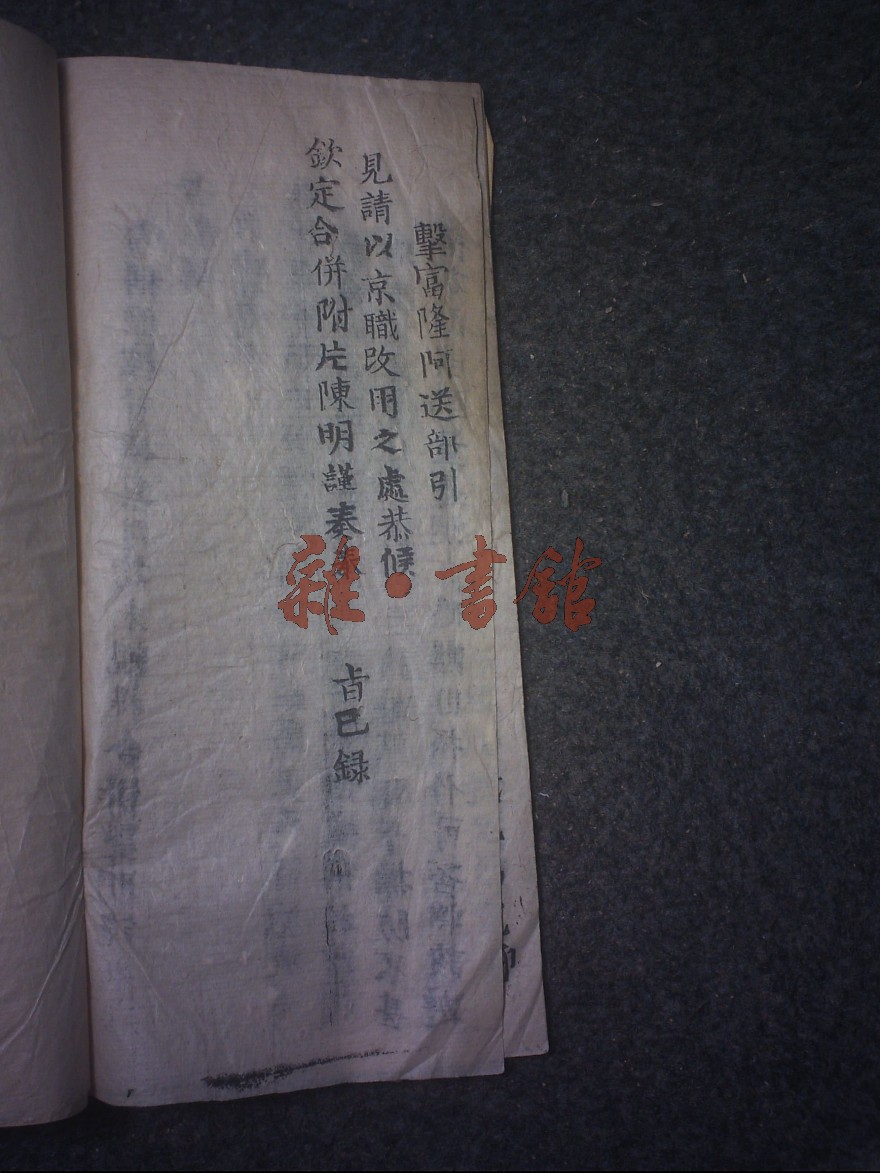 擊富隆阿送部引
見請以京職改用之處恭候
欽定合併附片陳明謹奏
旨已錄
雜·書館